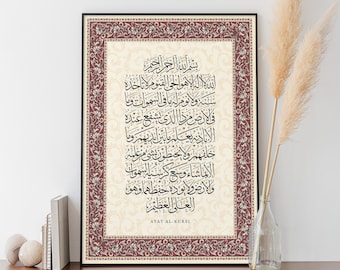 بسم الله الرحمن الرحيم
الله لا إله إلا هو الحي القيوم لا تأخذه
سنة ولا نوم له ما في السموات وما
في الأرض من ذا الذي يشفع عنده
إلا بإذنه يعلم ما بين أيديهم وما
خلفهم ولا يحيطون بشيء من علمه
إلا بما شاء وسع كرسيه السموات
والأرض ولا يؤوده حفظهما وهو
العلي العظيم
AYAT AL-KURSI